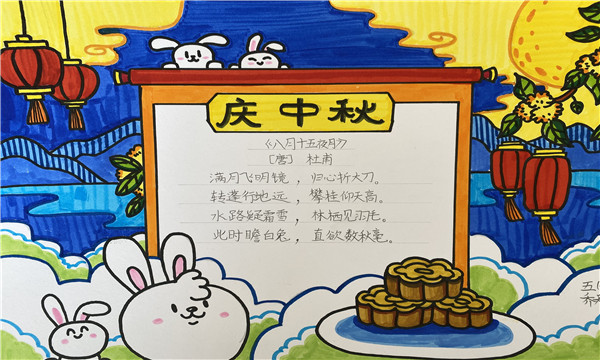 庆中秋
《八月十五夜月》
[唐] 杜甫
满月飞明镜，归心折大刀。
转蓬行地远，攀桂仰天高。
水路疑霜雪，林栖见羽毛。
此时瞻白兔，直欲数秋毫。
五(